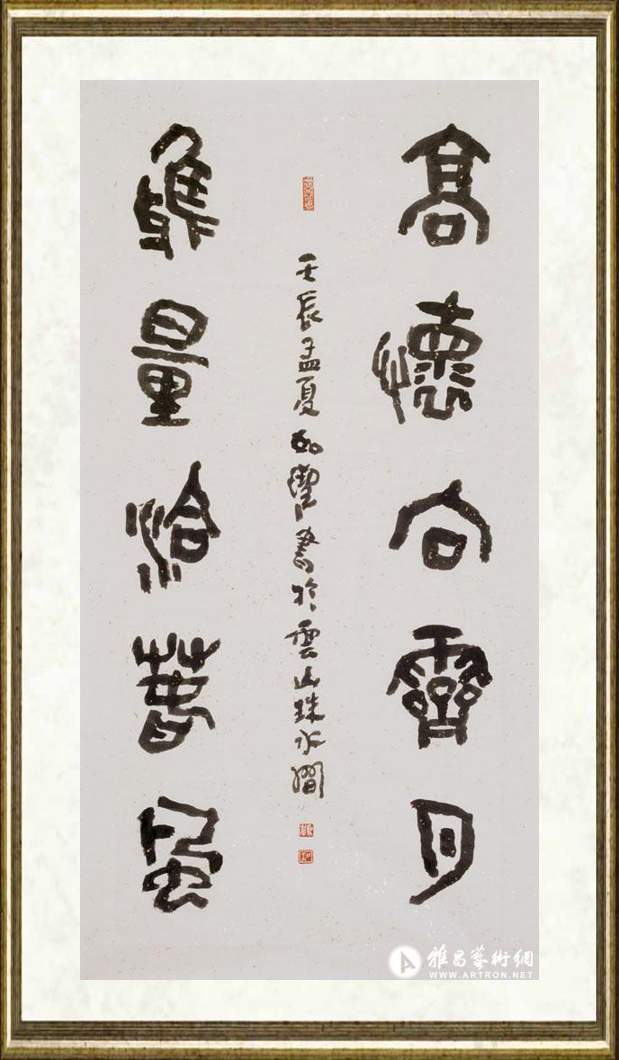 高懷向霽月
壬辰孟夏如書於雲山珠水間
雅量恰春風
雅昌藝術網
WWW.ARTRON.NET